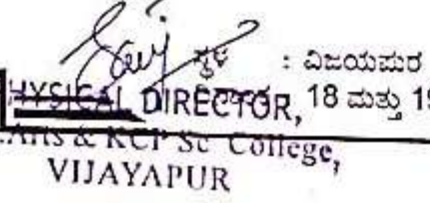 ಸ್ಥಳ : ವಿಜಯಪುರ
PHYSICAL DIRECTOR, 18 ಮತ್ತು 19
Arts & KCP Sc College,
VIJAYAPUR